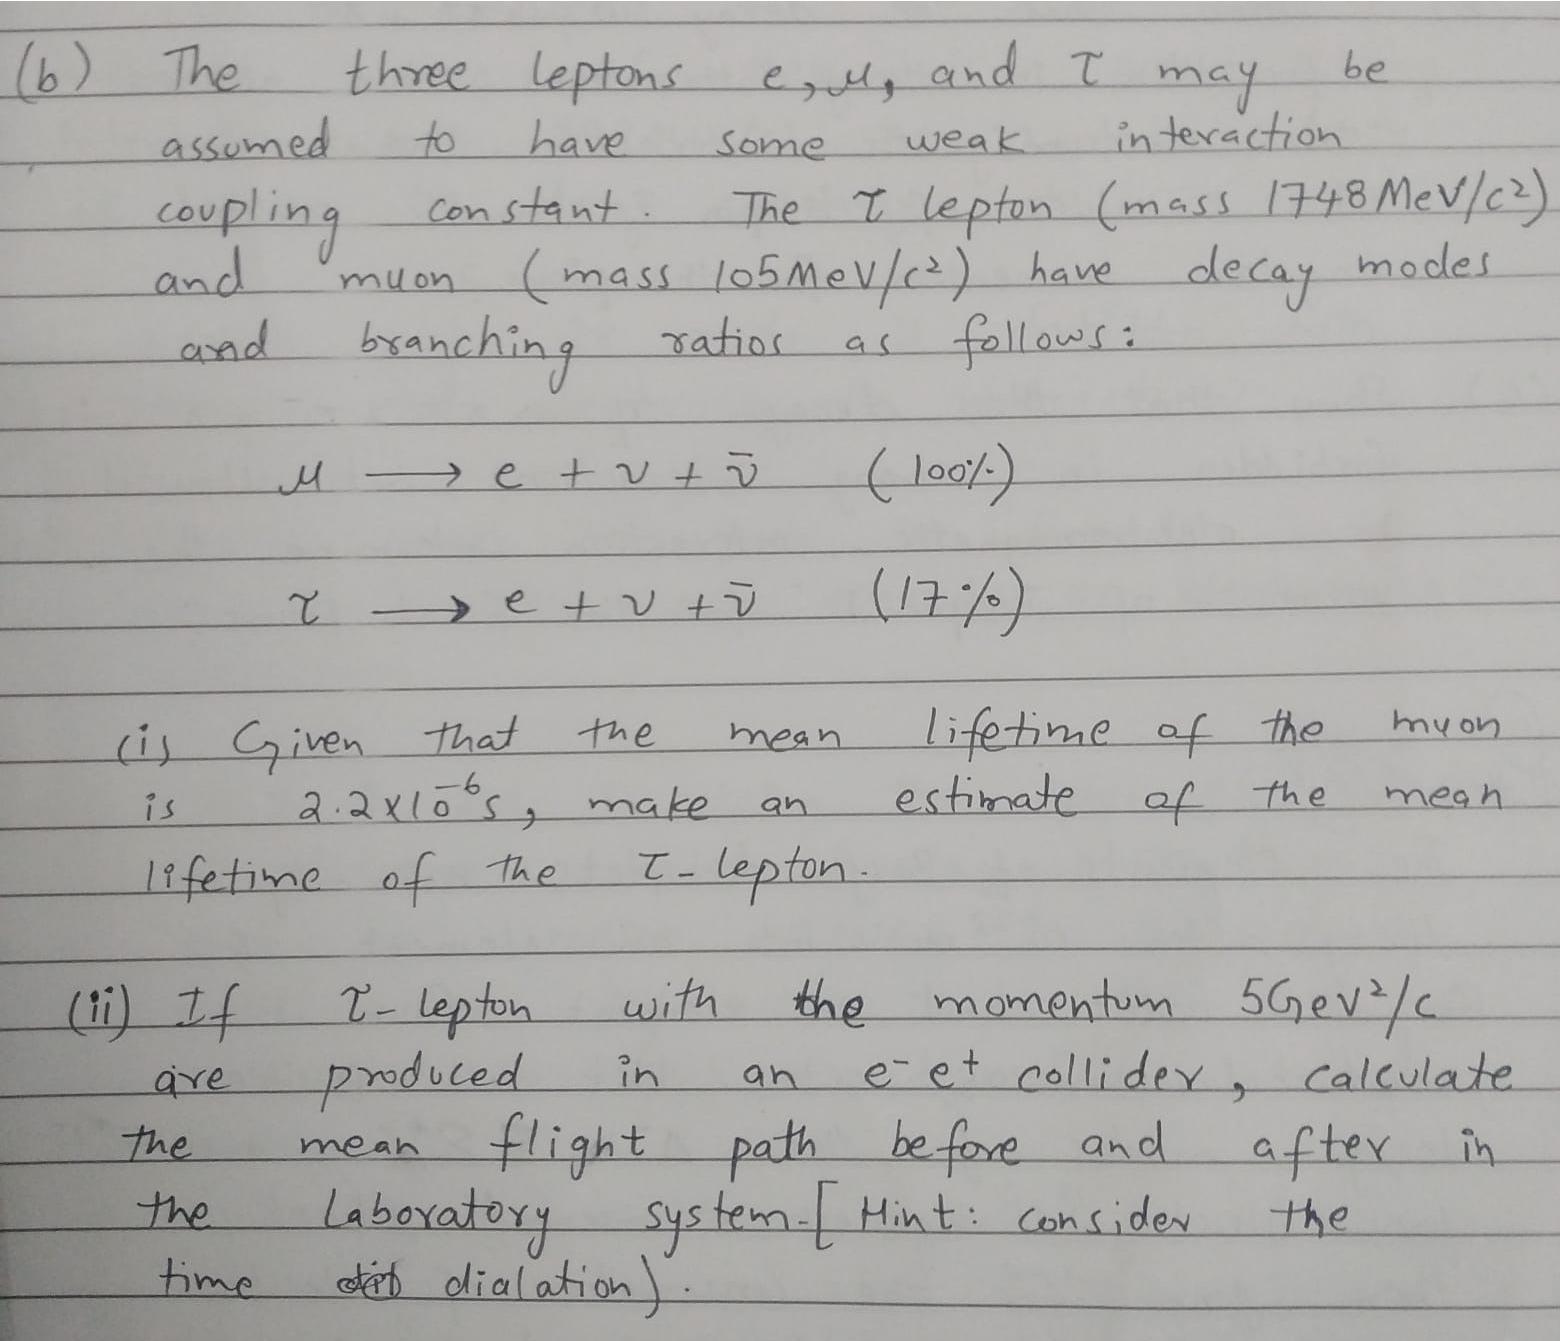 (b) The three leptons e, μ, and τ may be
assumed to have some weak interaction
coupling constant. The τ lepton (mass 1748 MeV/c²)
and muon (mass 105 MeV/c²) have decay modes
and branching ratios as follows:
μ ⟶ e + ν + ν̄ (100%)
τ ⟶ e + ν + ν̄ (17%)
(i) Given that the mean lifetime of the muon
is 2.2×10⁻⁶s, make an estimate of the mean
lifetime of the τ-lepton.
(ii) If τ-lepton with the momentum 5Gev²/c
are produced in an e⁻ e⁺ collider, calculate
the mean flight path before and after in
the Laboratory system-[Hint: consider the
time dialation).